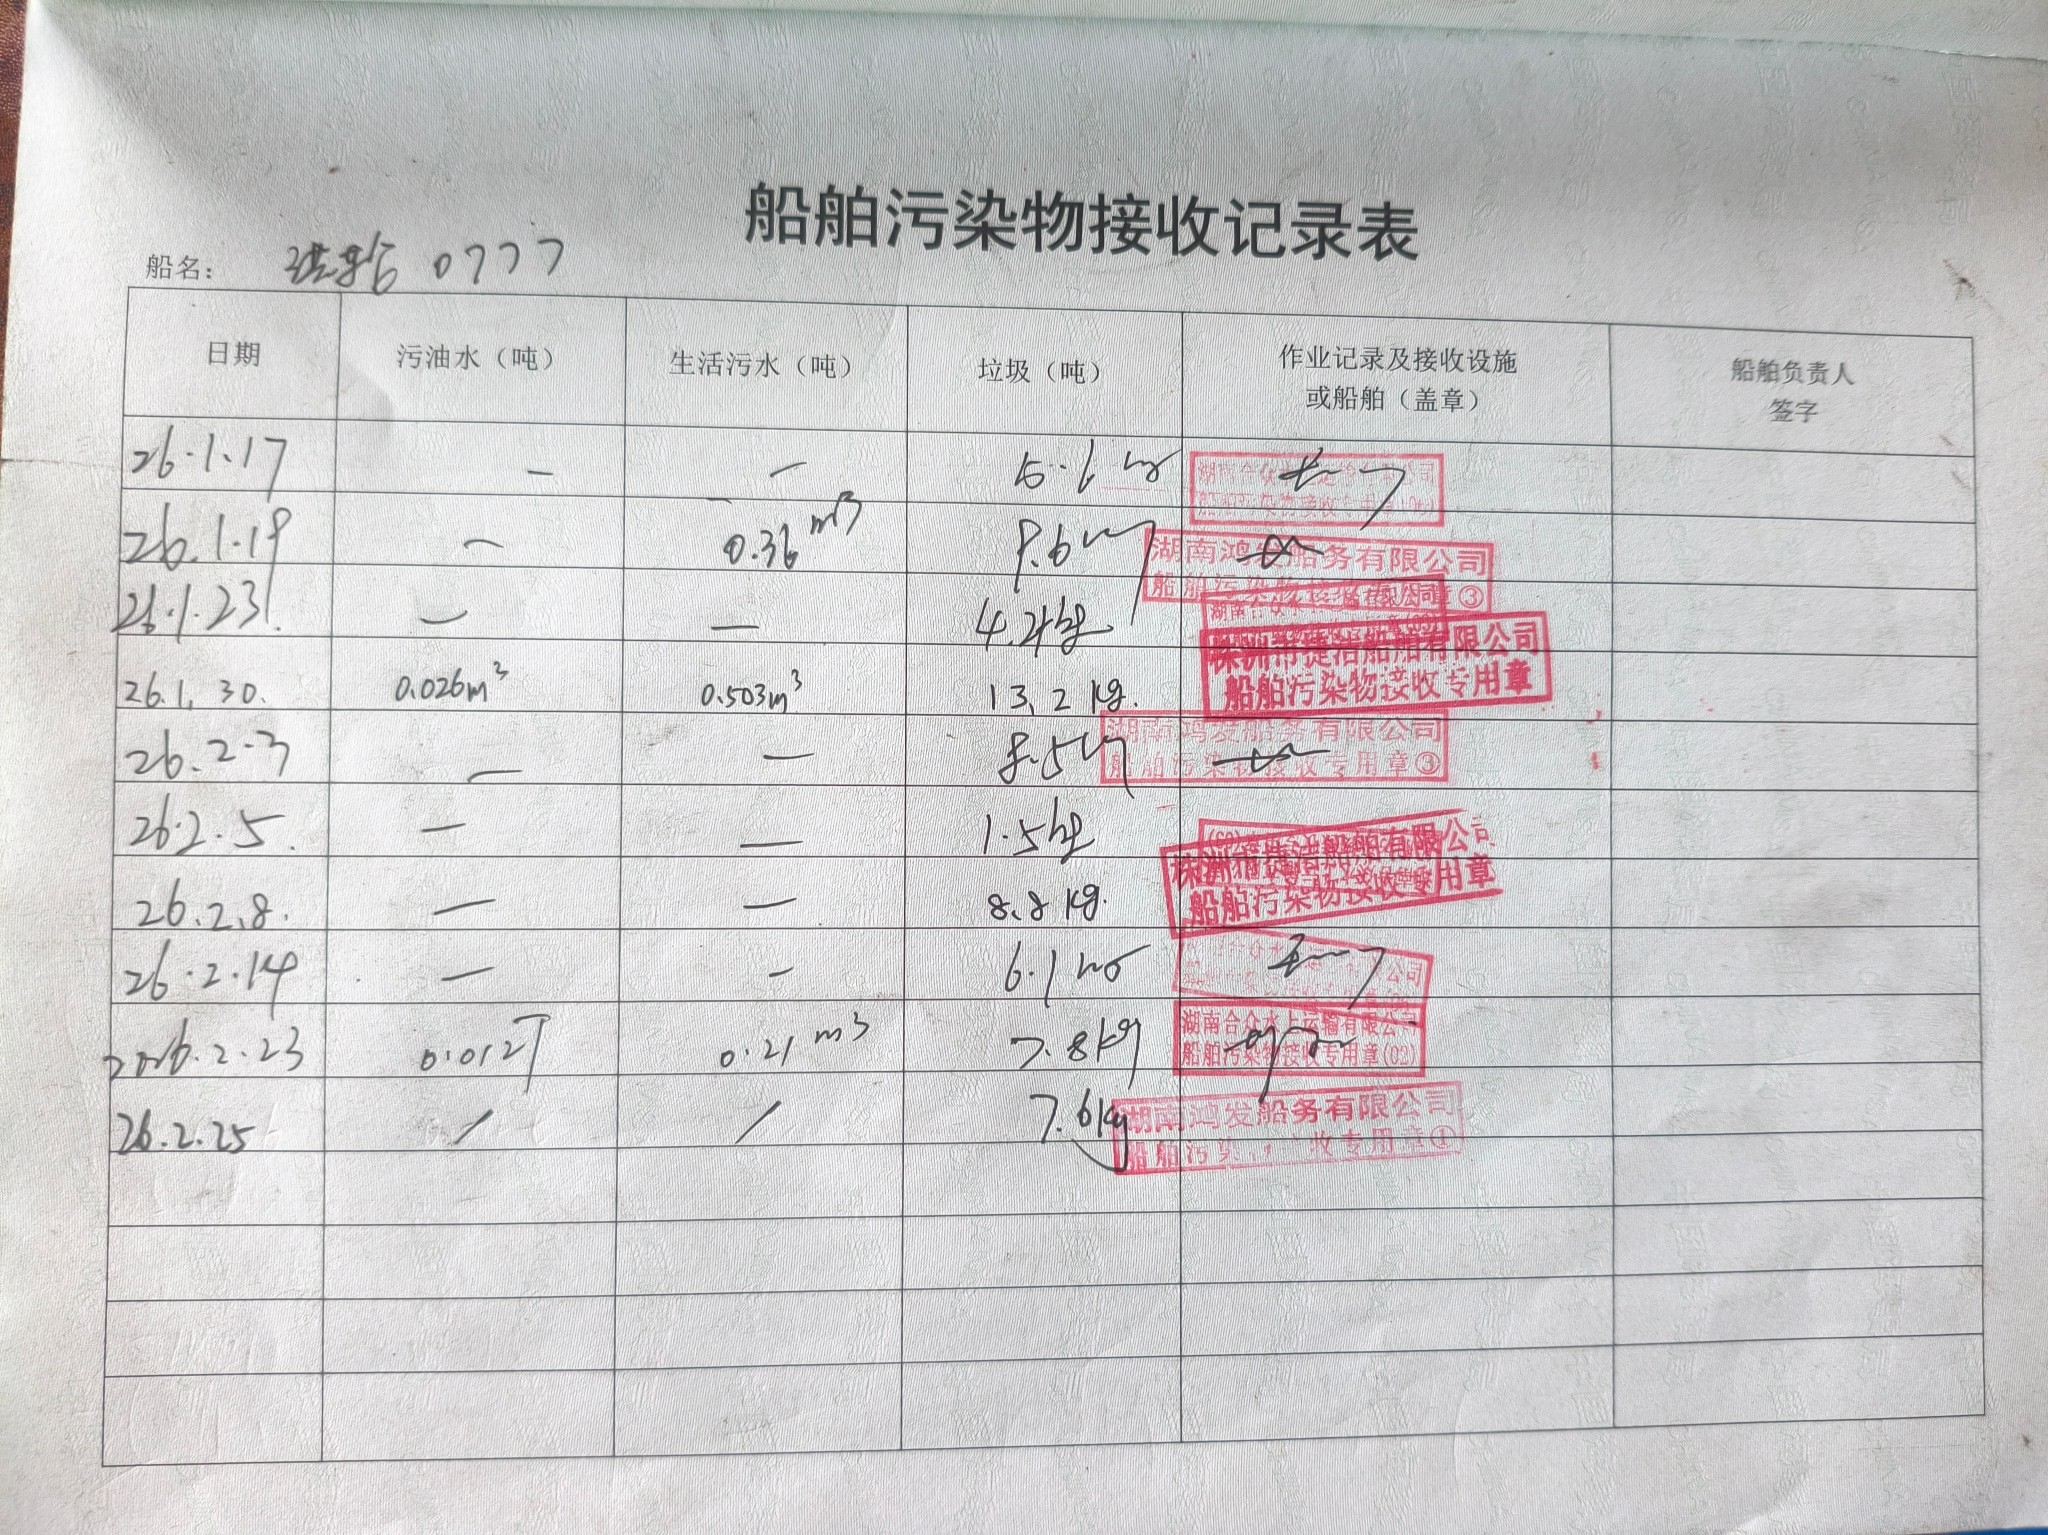 船舶污染物接收记录表
船名： 0777
日期 污油水（吨） 生活污水（吨） 垃圾（吨） 作业记录及接收设施或船舶（盖章） 船舶负责人签字
26.1.17 — —
湖南合众
26.1.19 — 0.36 m3
湖南鸿发船务有限公司
船舶污染物接收专用章③
26.1.23. — — 4.2kg
26.1.30. 0.026m3 0.503m3 13.2 kg.
株洲市捷洁船舶有限公司
船舶污染物接收专用章
26.2.3 — — 8.5kg
湖南鸿发船务有限公司
船舶污染物接收专用章③
26.2.5. — — 1.5kg
26.2.8. — — 8.8 kg.
株洲市捷洁船舶有限公司
船舶污染物接收专用章
26.2.14 — — 6.1 kg
2026.2.23 0.012T 0.21 m3 7.8kg
湖南合众水上运输有限公司
船舶污染物接收专用章(02)
26.2.25 / / 7.6kg
湖南鸿发船务有限公司
船舶污染物接收专用章①